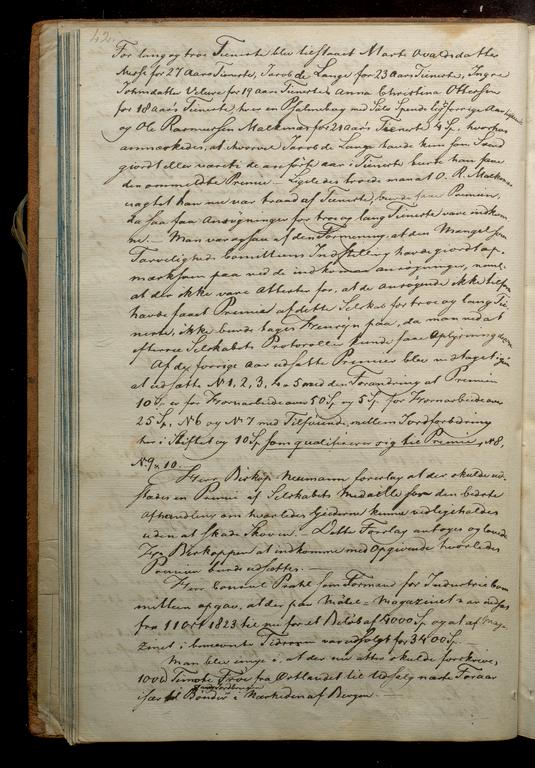 42.
For lang og troe Tieneste blev tilstaaet Marte Ovaldsdatter
for 27 Aars Tieneste, Jacob de Lange for 23 Aars Tieneste, Ingre
Johnsdatter for 19 Aars Tieneste Anna Christina Ottersen
for 18 Aars Tieneste, hver en Psalmebog med Sølv Spende
og Ole Rasmussen Malkenæs for 21 Aars Tieneste 4 Sp, hvorpaa
anmærkedes, at hvorvel Jacob de Lange havde kun som
giordt eller været de første aar i Tieneste burde han faae
den anmeldte Præmie. Ligeledes troede man at O. R. Malkenæs
uagtet han nu var traad af Tieneste, burde faae Præmien,
da saa faa Ansøgninger for troe og lang Tieneste vare indkom
ne. Man var ogsaa af den Formening, at den Mangel som
Committeens Indstilling havde giordt op-
mærksom paa ved de indkomne ansøgninger, neml.
at der ikke vare Attester for, at de ansøgende ikke tilforn
havde faaet Præmie af dette Selskab for troe og lang Tie-
neste, ikke burde tages Hensyn paa, da man ved at
efterse Selskabets Protocoller kunde faae Oplysning derom
Af de forrige Aar udsatte Præmier blev vedtaget igien
at udsætte No 1, 2, 3, 4 a 5 med den Forandring at Præmien
10 Sp er for Hornarbeide over 50 Sp og 5 Sp for Hornarbeide over
25 Sp, No 6 og No 7 med Tilføiende, mellem Jordforbedring
her i Stiftet og 10 Sp som qualificerer sig til Præmie, No 8,
No 9 & 10.
Herr Biskop Neumann foreslog at der skulde ud-
sættes en Præmie af Selskabets Medaille for den bedste
Afhandling om hvorledes Giederne kunne vedligeholdes
uden at skade Skoven. Dette Forslag antoges og lovede
Hr. Biskoppen at indkomme med Opgivende hvorledes
Præmien burde udsættes.
Herr Consul Prahl som Formand for Industrie Com
mitteen opgav, at der fra Møbel-Magazinet var udsat
fra 11 Oct 1823 til nu for et Beløb af 4000 Sp og at af Mag-
azinet i bemeldte Tidsrum var udsolgt for 3400 Sp.
Man blev enige i, at der nu atter skulde forskrives
1000 Timothe Frøe fra Østlandet til Udsalg næste Foraar
især til Bønder i Nærheden af Bergen.